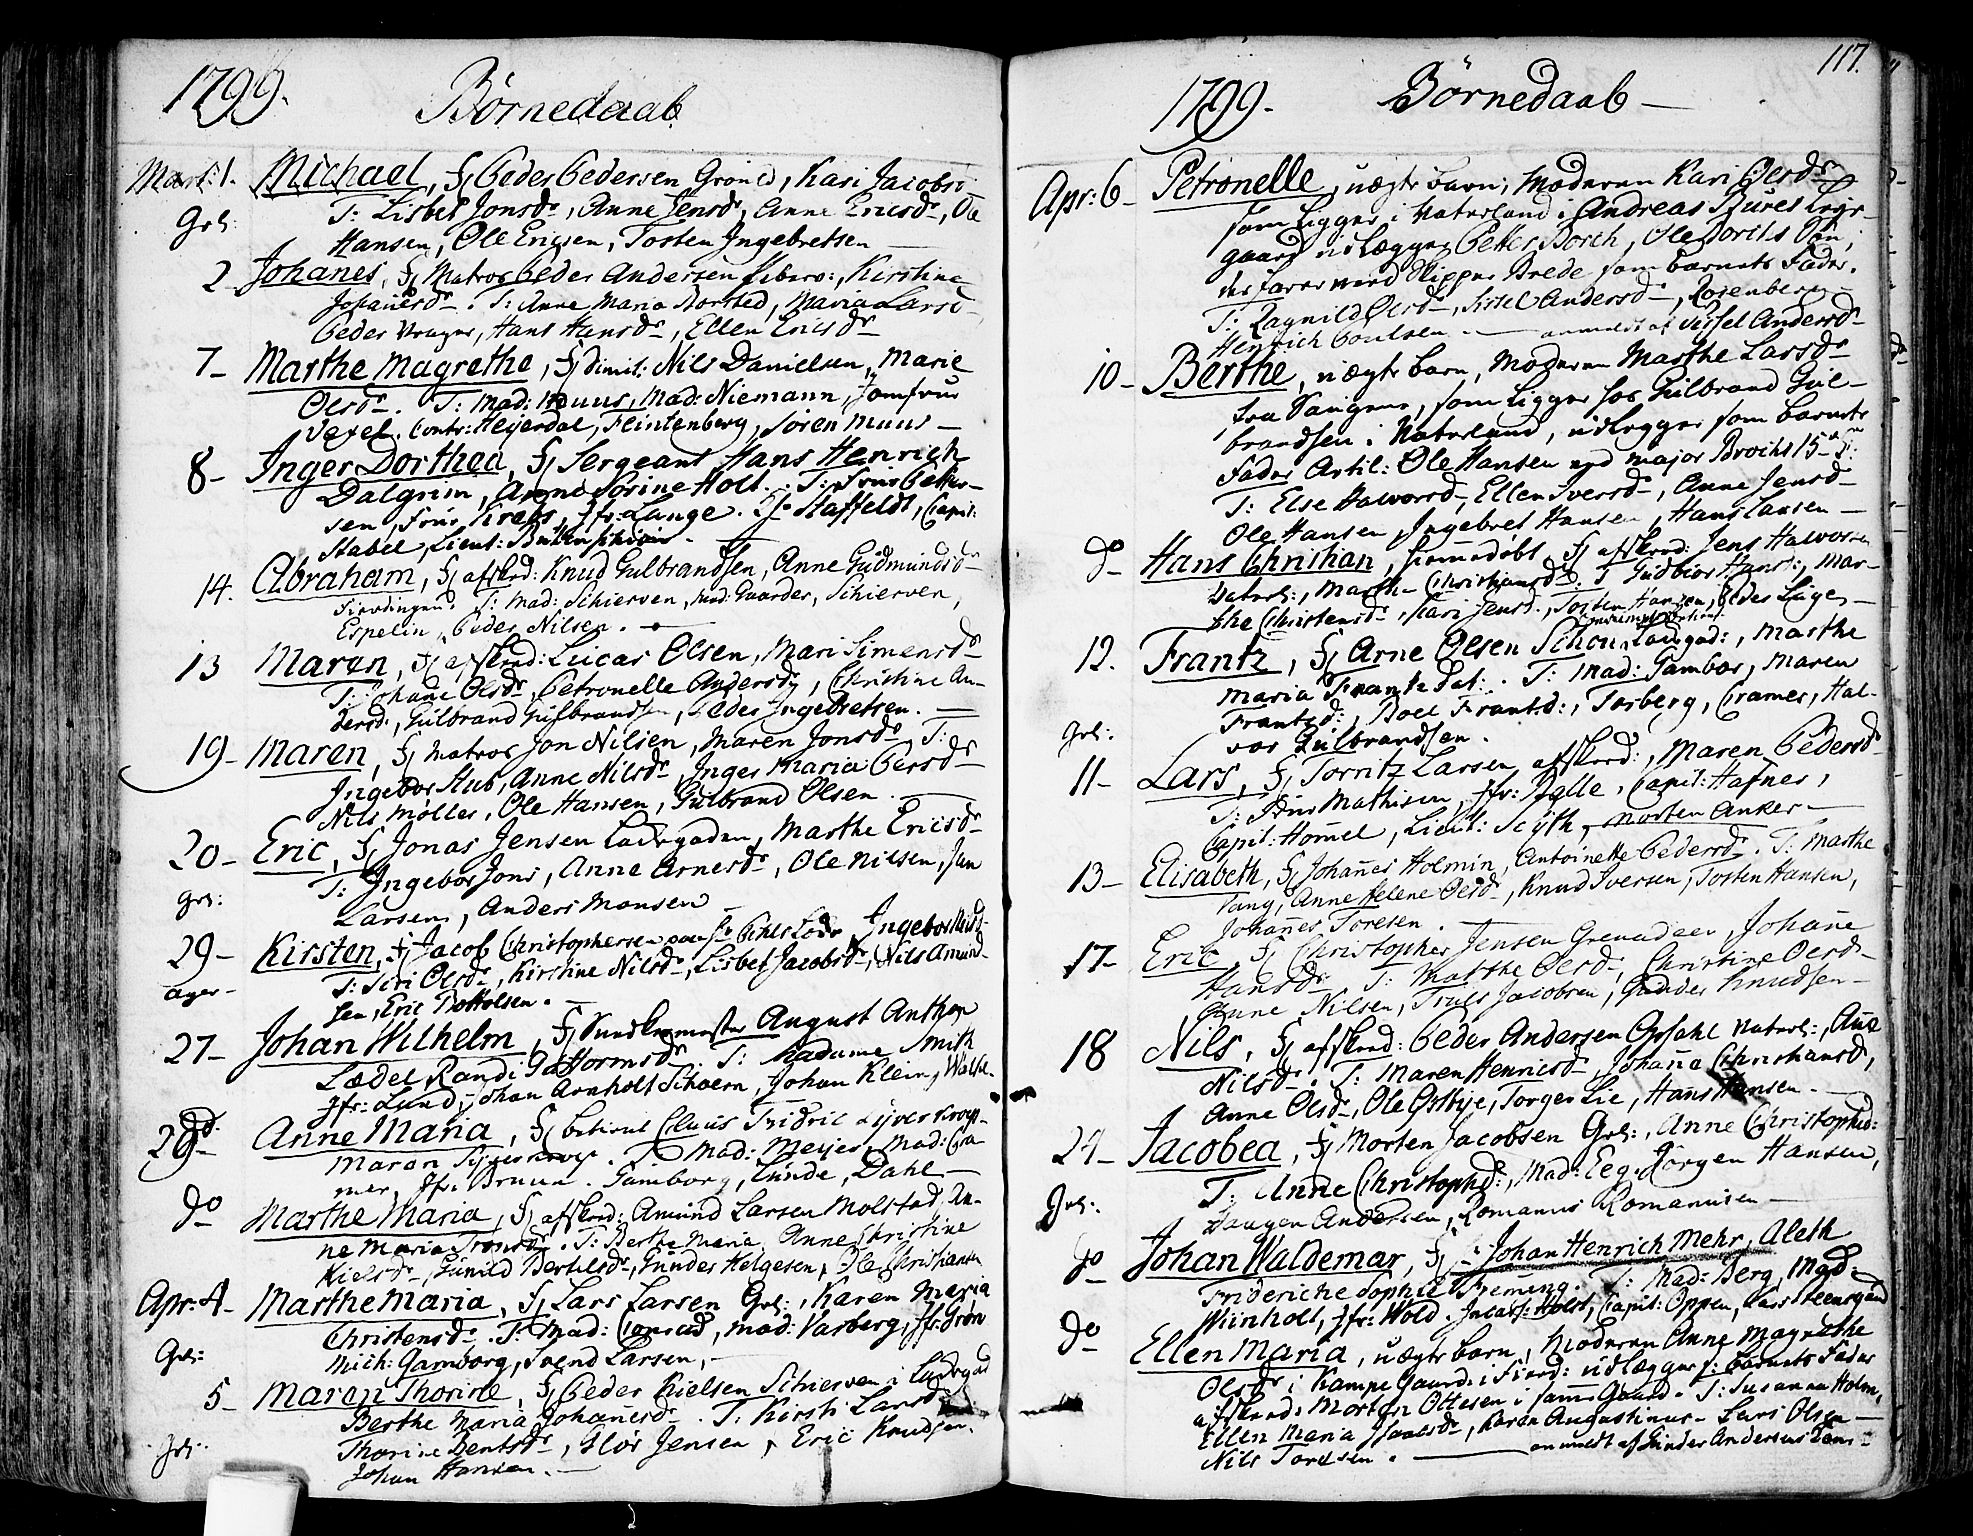 1799.
Børnedaab
Mart: 1. Michael, F: Peder Pedersen Grønl:, Kari Jacobsd.
Grl: T: Lisbet Jonsdr., Anne Jensdr., Anne Ericsdr., Ole
Hansen, Ole Ericsen, Tosten Ingebretsen —
2. Johanes, F: Matros Peder Andersen, Kirstine
Johañesdr. T: Anne Maria Rorsted, Maria Larsd.
Peder Vrager, Hans Hansdr., Ellen Ericsdr.
7 — Marthe Magrethe, F: Dimit: Nils Danielsen, Marie
Olsdr. T: Mad: Muus, Mad: Niemann, Jomfrue
Vexel, Contr: Heyerdal, Flintenberg, Søren Muus —
8 — Inger Dorthea, F: Sergeant Hans Henrich
Dalgrün, Anne Sorine Holt. T: Frue Petter-
sen, Frue Krebs, Jfr: Lange. Staffeldt, Capit:
Stabel, Lieut:
14. Abraham, F: afsked: Knud Gulbrandsen, Anne Gudmundsdr.
Fierdingen. T: Mad: Schierven, Mad: Gaarder, Schierven,
Espelin, Peder Nilsen. —
13 Maren, F: afsked: Lucas Olsen, Mari Simensdr.
T: Johañe Olsdr., Petronelle Andersdr., Christine An-
dersd:, Gulbrand Gulbrandsen, Peder Ingebretsen. —
19 — Maren, F: Matros Jon Nilsen, Maren Jonsdr. T:
Ingebor Aub, Anne Nilsdr., Inger Maria Persdr.
Nils Møller, Ole Hansen, Gulbrand Olsen. —
20 — Eric, F: Jonas Jensen Ladegaden, Marthe Ericsdr.
grl: T: Ingebor Jons, Anne Arnesdr., Ole Nilsen, Jan
Larsen, Anders Monsen —
29 — Kirsten, F: Jacob Christophersen Pihls Løde, Ingebor
ager — T: Siri Olsdr., Kirstine Nilsdr., Lisbet Jacobsdr., Nils Amund-
sen, Eric Torkelsen. —
27 — Johan Wilhelm, F: August Anthon
Lædel, Randi Gattormsdr. T: Madame Smith
Jfr: Lund, Johan Arnholt Schaern, Johan Klein,
29 — Anne Maria, F: Betient Claus Fridric
Maren. T: Mad: Meyer, Mad: Cra-
mer, Jfr: Bruun. Gamborg, Lunde, Dahl —
do Marthe Maria, F: afsked: Amund Larsen Molstad, An-
ne Maria Tronsdr. T: Berthe Maria, Anne Christine
Nielsdr., Gunild Bertelsdr., Gunder Helgesen, Ole Christiansen
Apr: 4 — Marthe Maria, F: Lars Larsen Grl:, Karen Maria
Christensdr. T: Mad: Conrad, Mad: Varberg, Jfr: Grøn
Grl: Mich: Gamborg, Svend Larsen, —
5 — Maren Thorine, F: Peder Nielsen Schierven i Ladegad
Berthe Maria Johañesdr. T: Kirsti Larsdr.
grl: Thorine Bentsdr., Hlor Jensen, Eric Knudsen,
Johan Hansen. —
117.
1799 — Børnedaab —
Apr: 6 — Petronelle, uægte barn, Moderen Kari Olsdr.
som ligger i Vaterland i Andreas Bures
gaard udlægger Petter Borch, Ole Borchs Søn,
der farer med Skipper Brede som barnets Fader.
T: Ragnild Olsdr., Sissel Andersdr., Rosenberg
Henrich Poulsen. — anmeldt af Sissel Andersdr.
10 — Berthe, uægte barn, Moderen Marthe Larsdr.
fra Vangene, som ligger hos Gulbrand Gul-
brandsen i Vaterland, udlægger som barnets
Fader Artil: Ole Hansen ved major Brochs
T: Else Halvorsd., Ellen Iversd., Anne Jensd.
Ole Hansen, Ingebret Hansen, Hans Larsen —
do Hans Christian, hiemmedøbt, F: afsked: Jens Halvorsen
Vaterl:, Marth Christiansd. T: Gudbior Hans:, Mar-
the Christensd., Kari Jensd., Tosten Hansen, Peder Lager —
12. Frantz, F: Arne Olsen Schou, Ladegad:, Marthe
Maria Frantzdat:. T: Mad: Gambor, Maren
Frantzd:, Boel Frantzd:, Torberg, Cramer, Hal-
grl: vor Gulbrandsen.
11 — Lars, F: Torritz Larsen afsked:, Maren Pedersdr.
T: Frue Mathisen, Jfr: Balle, Capit: Hafner,
Capit: Homel, Lieut: Scÿth, Morten Anker —
13 — Elisabeth, F: Johañes Holmin, Antoinette Pedersdr. T: Marthe
Vang, Anne Helene Olsdr., Knud Iversen, Tosten Hansen,
Johañes Toresen.
17 — Eric, F: Christopher Jensen Grenadeer, Johañe
Hansdr. T: Marthe Olsdr., Christine Olsd.
Arne Nilsen, Truls Jacobsen, Gunder Knudsen —
18 Nils, F: afsked: Peder Andersen Opsahl Vaterl:, Añe
Nilsdr. T: Maren Henricsdr., Johañe Christiansd.,
Anne Olsdr., Ole Østbye, Torger Lie, Hans Hansen. —
24 — Jacobea, F: Morten Jacobsen Grl:, Anne Christophd:
Grl: T: Anne Christophd:, Mad: Eeg, Jørgen Hansen,
Haagen Andersen, Romanus Romanusen —
do Johan Waldemar, F: Johan Henrich Mehr, Aleth
Frideriche Sophie Freming. T: Mad: Berg, Mad:
Wiinholt, Jfr: Wold. Holst, Capit: Oppen,
do Ellen Maria, uægte barn, Moderen Anne Magrethe
Olsdr. i Kampe Gaard i Fierd: udlægger t: Barnets Fader
afsked: Morten Ottesen i same Gaard. T: Susanna Holm,
Ellen Maria Isaacsdr., Karen Augustinus — Lars Olsen —
Nils Toresen. — anmeldt af Gunder Andersens